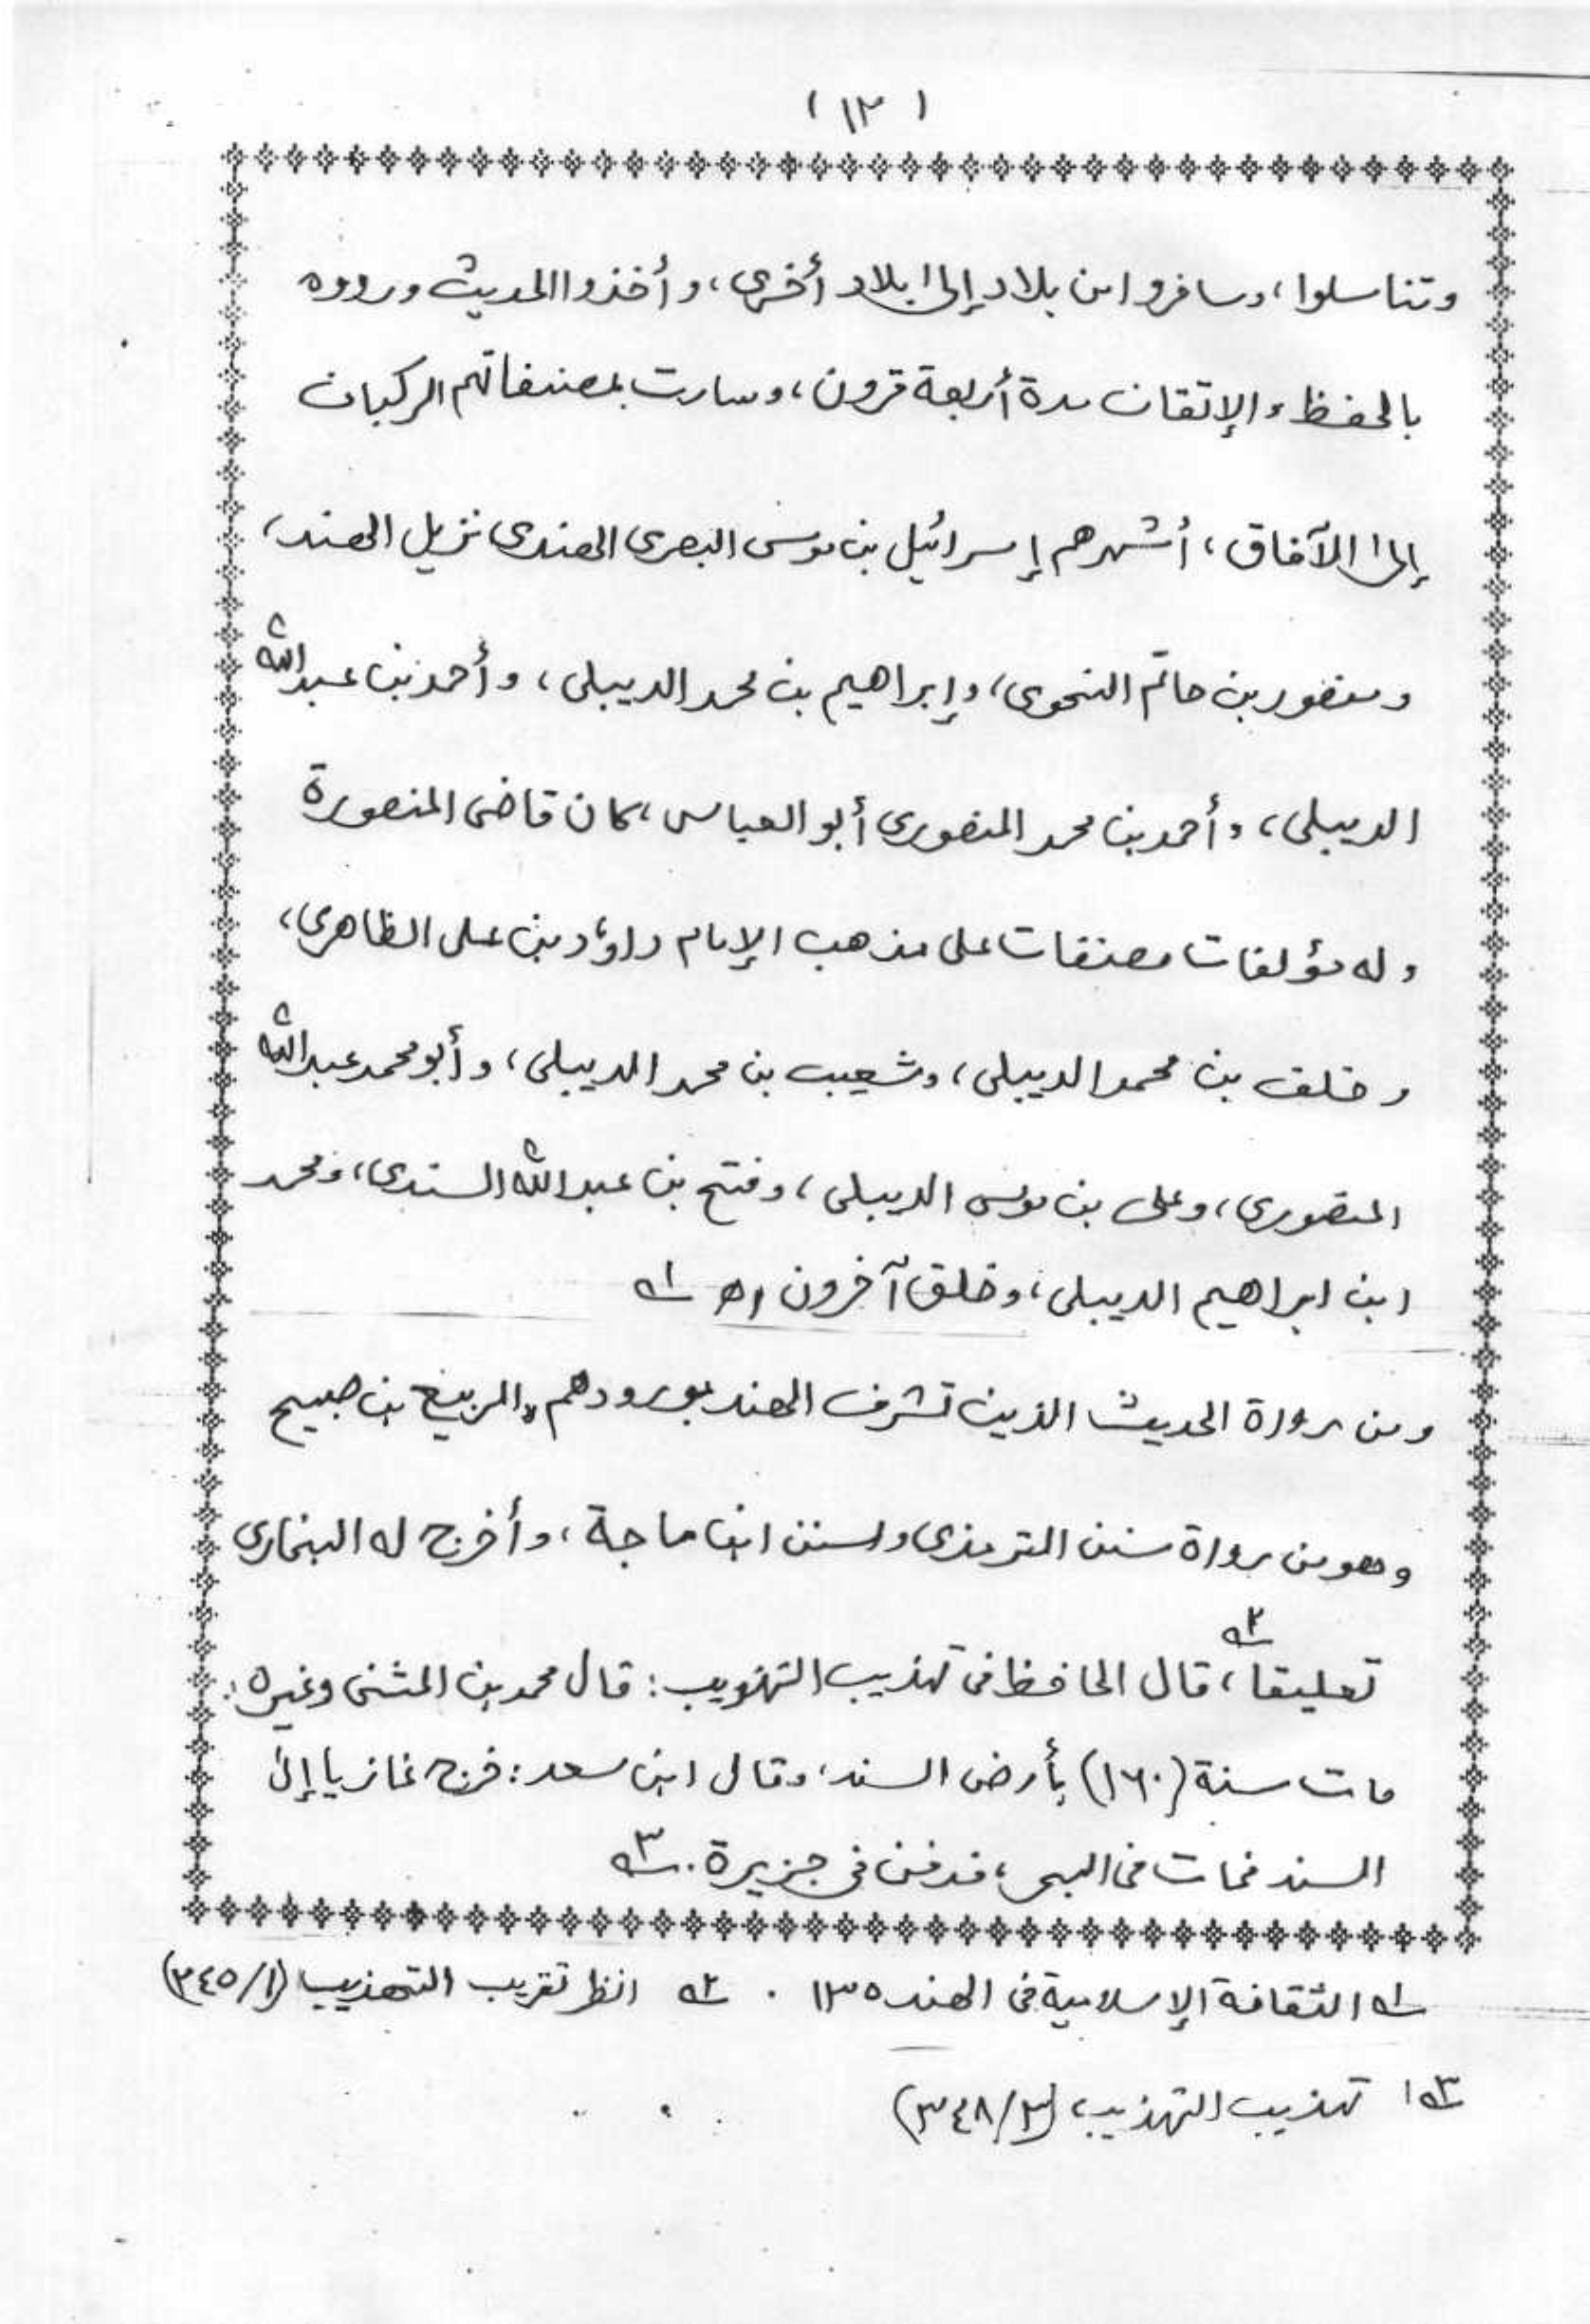 (١٣)
وتناسلوا، وسافروا من بلاد إلى بلاد أخرى، وأخذوا الحديث ورووه
بالحفظ والإتقان مدة أربعة قرون، وسارت بمصنفاتهم الركبان
إلى الآفاق، أشهرهم إسرائيل بن موسى البصرى الهندى نزيل الهند،
ومنصور بن حاتم النحوى، وإبراهيم بن محمد الديبلى، وأحمد بن عبد الله
الديبلى، وأحمد بن محمد المنصورى أبو العباس، كان قاضى المنصورة
وله مؤلفات مصنفات على مذهب الإمام داؤد بن على الظاهرى،
وخلف بن محمد الديبلى، وشعيب بن محمد الديبلى، وأبو محمد عبد الله
المنصورى، وعلى بن موسى الديبلى، وفتح بن عبد الله السندى، ومحمد
ابن ابراهيم الديبلى، وخلق آخرون اه ١ه
ومن رواة الحديث الذين تشرف الهند بورودهم، الربيع بن صبيح
وهو من رواة سنن الترمذى وسنن ابن ماجة، وأخرج له البخارى
تعليقا، ٢ه قال الحافظ فى تهذيب التهذيب: قال محمد بن المثنى وغيره:
مات سنة (١٦٠) بأرض السند، وقال ابن سعد: خرج غازيا إلى
السند فمات فى البحر، فدفن فى جزيرة. ٣ه
١ه الثقافة الإسلامية فى الهند ١٣٥ . ٢ه انظر تقريب التهذيب (١/٢٤٥)
٣ه تهذيب التهذيب، (٣/٢٤٨)